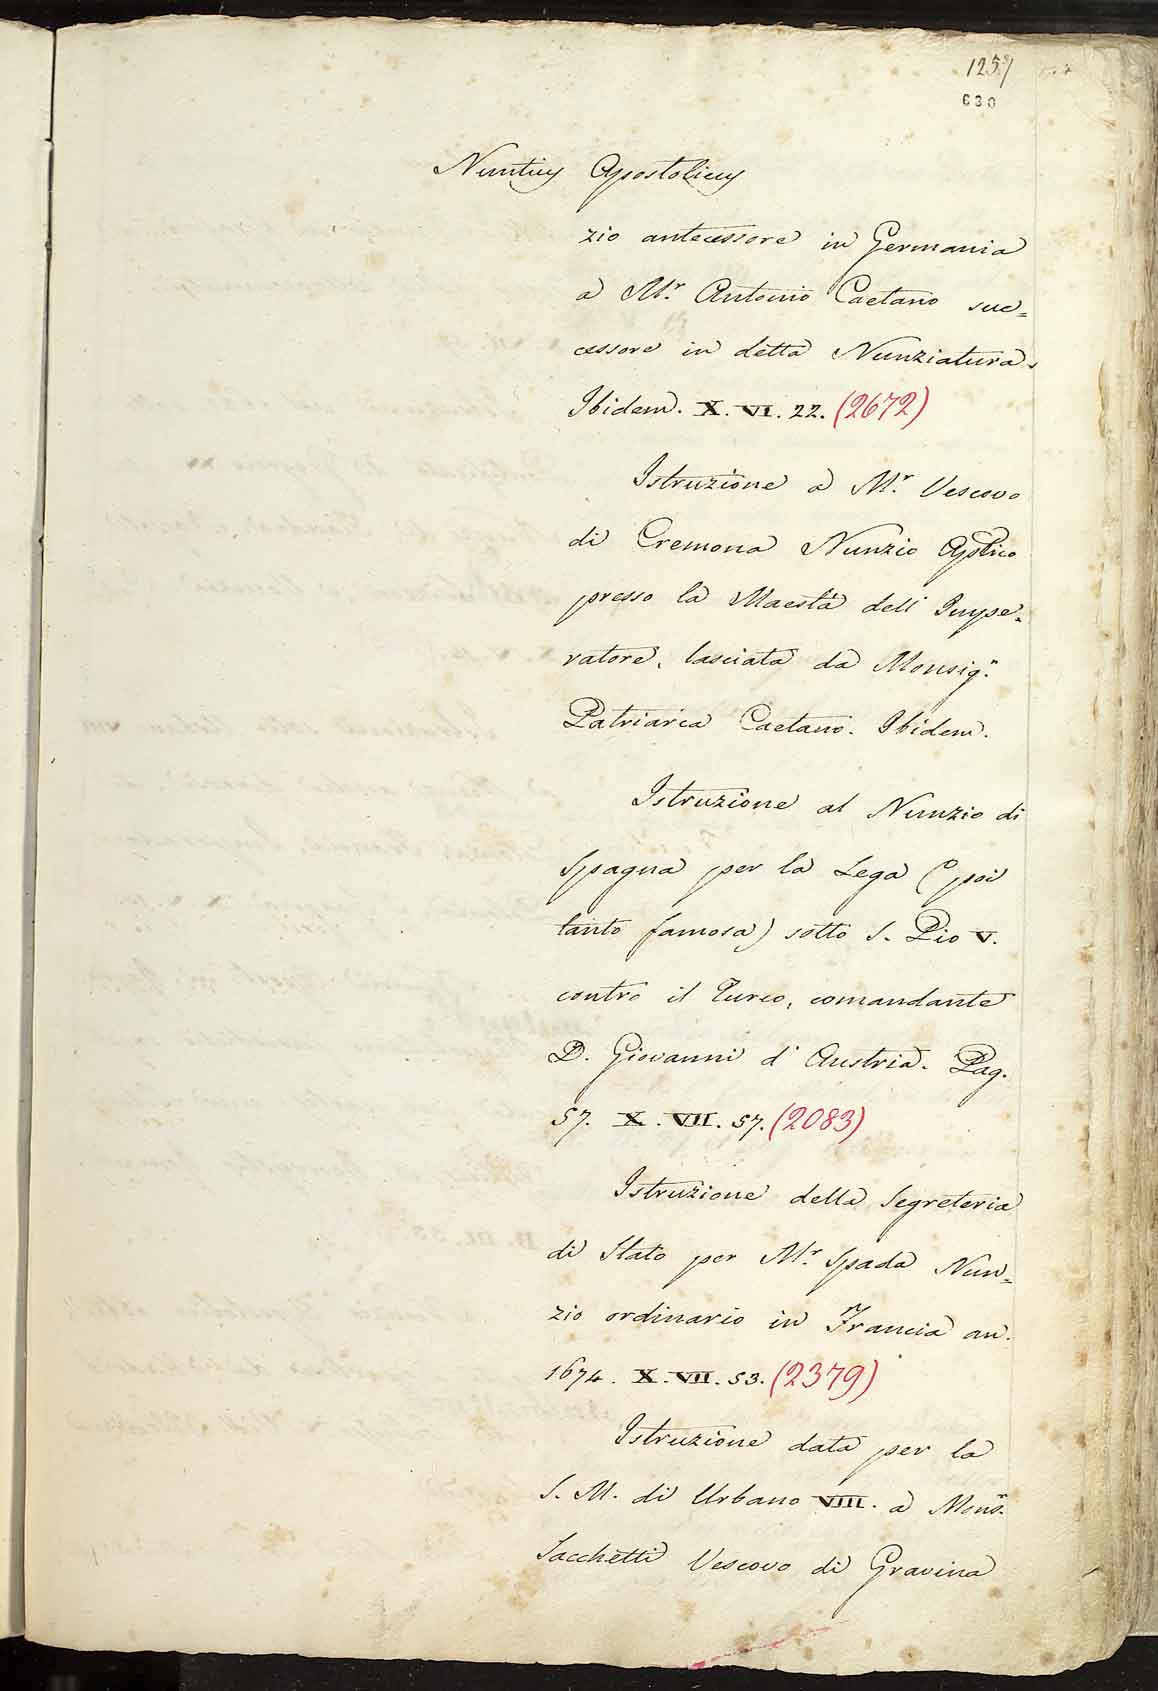 1257
630
Nuntius Apostolicus
zio antecessore in Germania
a Mr. Antonio Caetano suc=
cessore in detta Nunziatura.
Ibidem. X. VI. 22. (2672)
Istruzione a Mr. Vescovo
di Cremona Nunzio Aplico
presso la Maestà dell' Impe=
ratore, lasciata da Monsigr.
Patriarca Caetano. Ibidem.
Istruzione al Nunzio di
Spagna per la Lega (poi
tanto famosa) sotto S. Pio V.
contro il Turco, comandante
D. Giovanni d' Austria. Pag.
57. X. VII. 57. (2083)
Istruzione della Segreteria
di Stato per Mr. Spada Nun=
zio ordinario in Francia an.
1674. X. VII. 53. (2379)
Istruzione data per la
S. M. di Urbano VIII. a Monsr.
Sacchetti Vescovo di Gravina